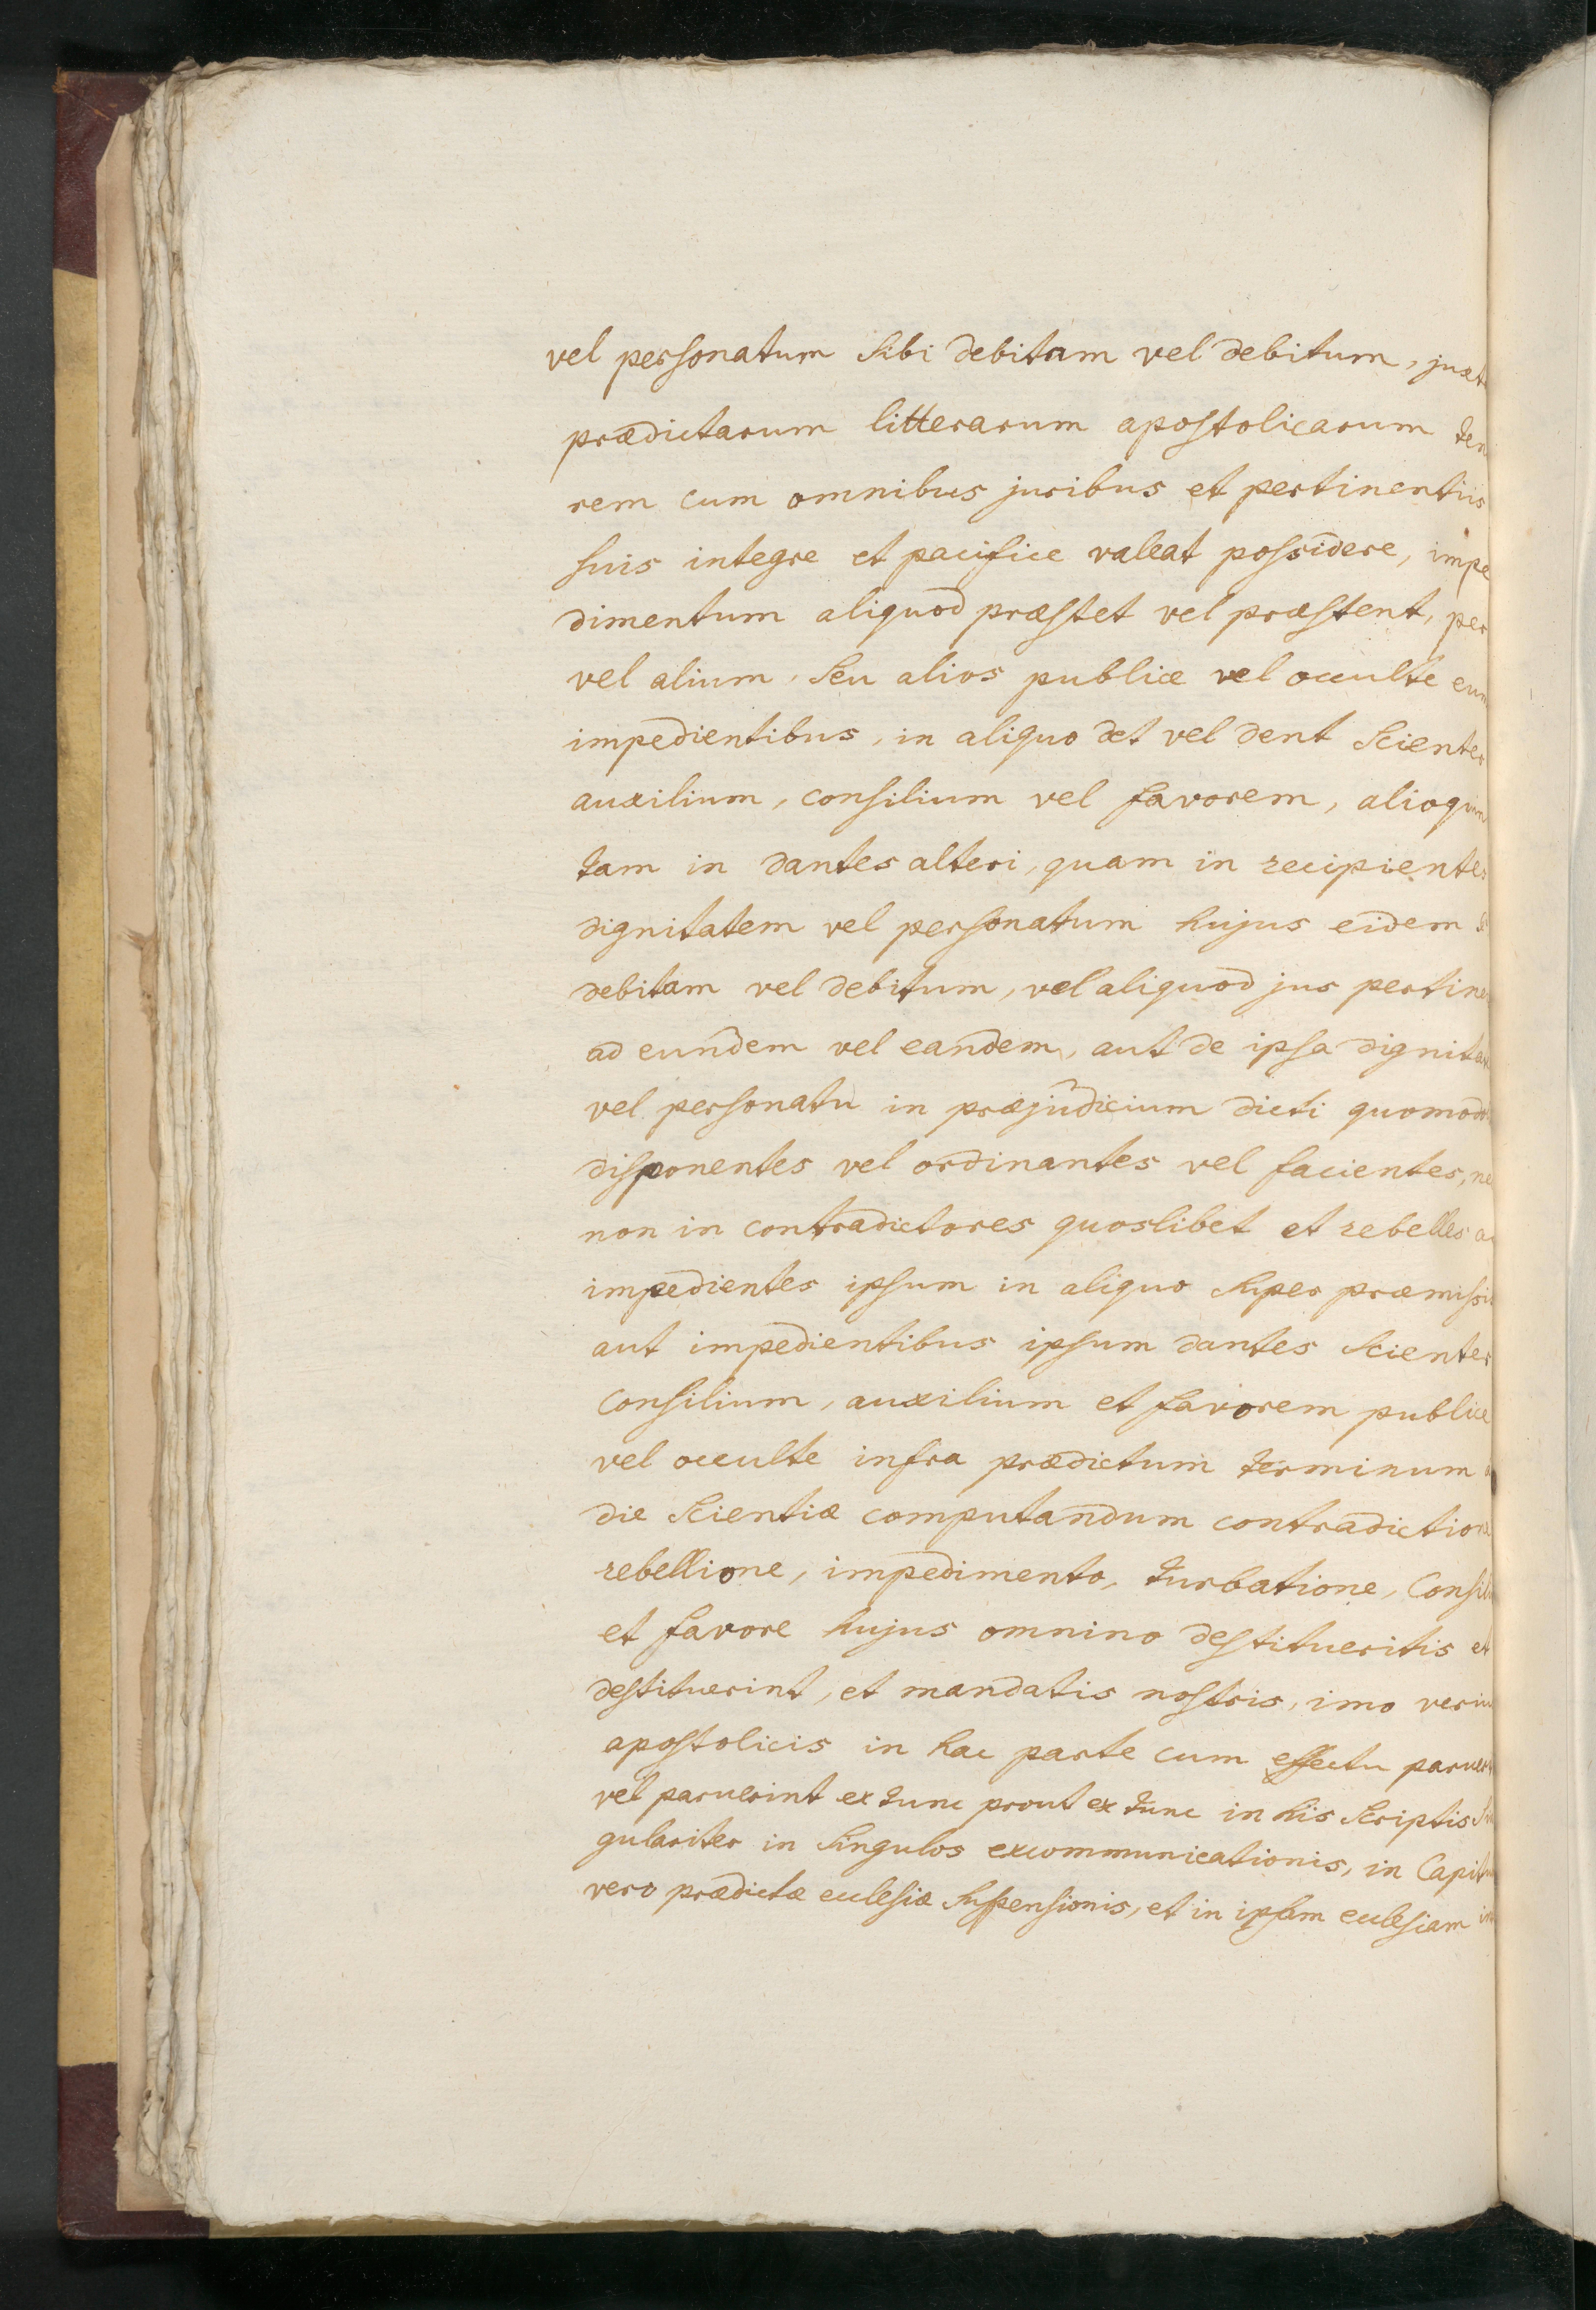 vel personatum sibi debitam vel debitum, juxt
prædictarum litterarum apostolicarum ten
rem cum omnibus juribus et pertinentiis
suis integre et pacifice valeat possidere, impe
dimentum aliquod præstet vel præstent, per
vel alium, seu alios publice vel occulte eum
impedientibus, in aliquo det vel dent scienter
auxilium, consilium vel favorem, alioquin
tam in dantes alteri, quam in recipientes
dignitatem vel personatum hujus eidem
debitam vel debitum, vel aliquod jus pertine
ad eundem vel eandem, aut de ipsa dignitat
vel personatu in præjudicium dicti quomodo
disponentes vel ordinantes vel facientes, ne
non in contradictores quoslibet et rebelles a
impedientes ipsum in aliquo super præmissi
aut impedientibus ipsum dantes scienter
consilium, auxilium et favorem publice
vel occulte infra prædictum terminum a
die scientiæ computandum contradictione
rebellione, impedimento, turbatione, Consil
et favore hujus omnino destitueritis et
destituerint, et mandatis nostris, imo veriu
apostolicis in hac parte cum effectu parueri
vel paruerint ex tunc prout ex tunc in his scriptis si
gulariter in singulos excommunicationis, in Capitu
vero prædictæ ecclesiæ suspensionis, et in ipsam ecclesiam in